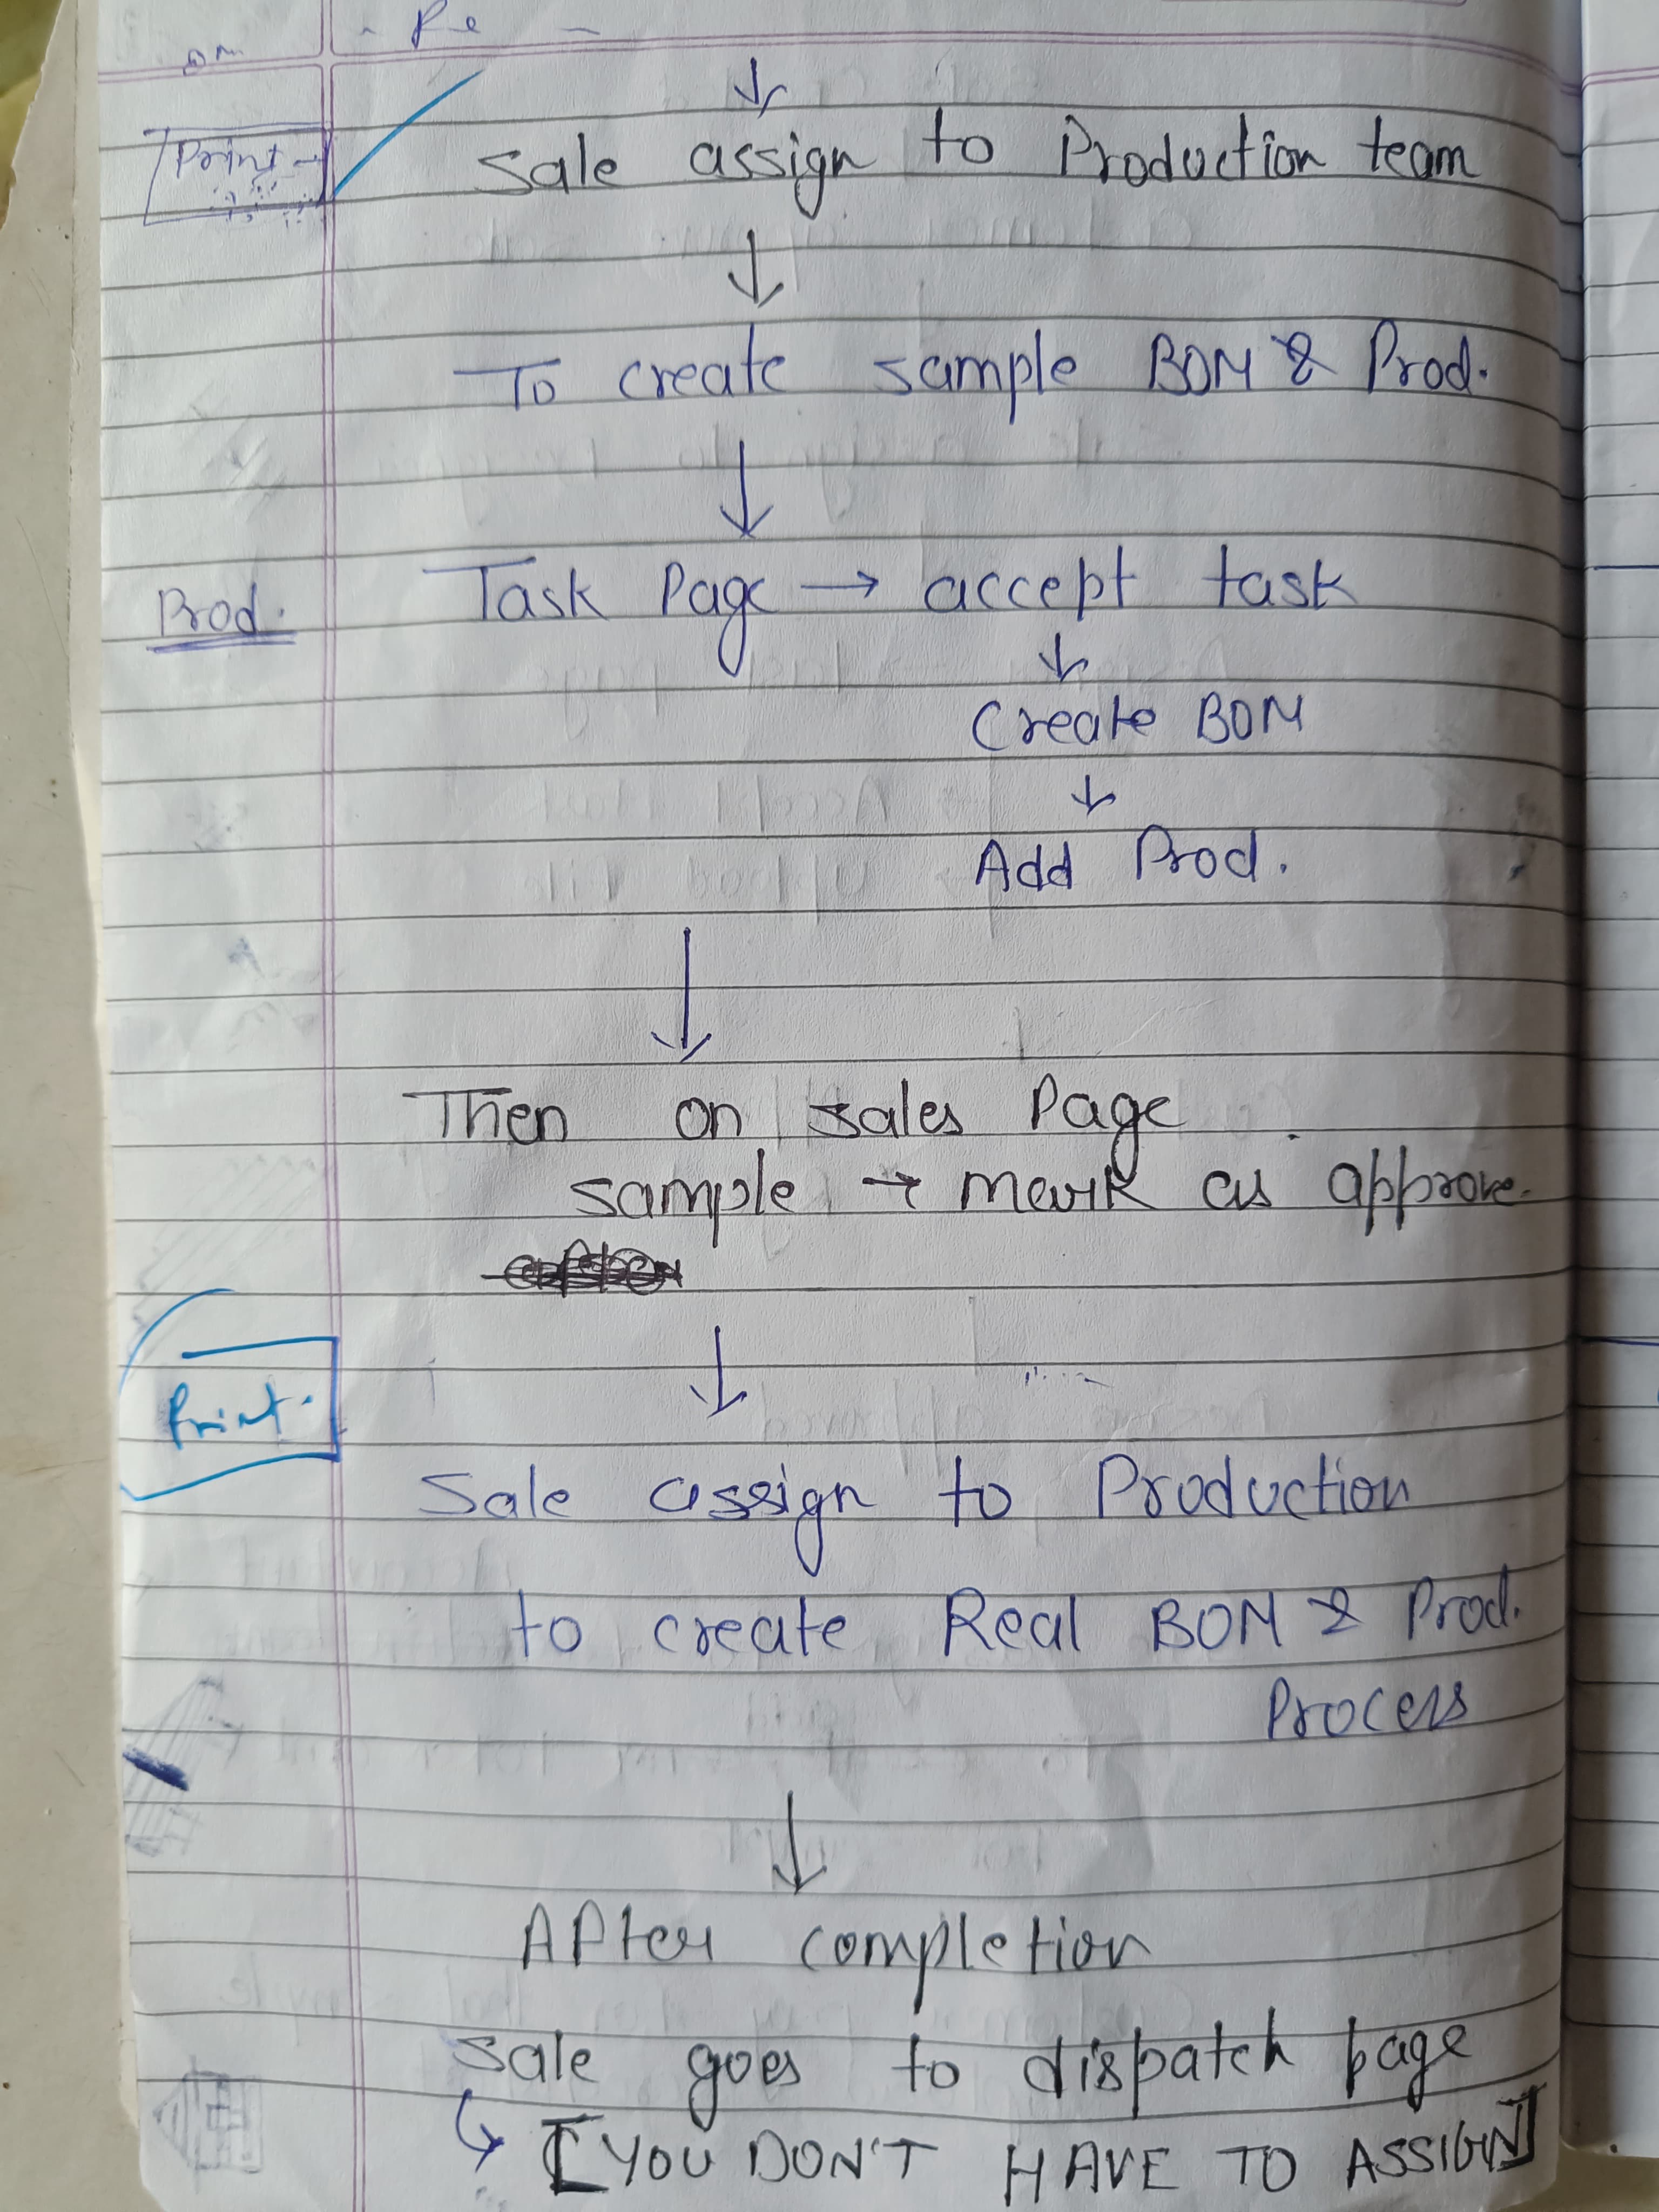 Print →
Sale assign to Production team
↓
To create sample BOM & Prod.
↓
Prod.
Task Page → accept task
↓
Create BOM
↓
Add Prod.
↓
Then on sales Page
sample → mark as approve.
↓
Print.
Sale assign to Production
to create Real BOM & Prod.
Process
↓
After completion
sale goes to dispatch page
↳ [YOU DON'T HAVE TO ASSIGN]